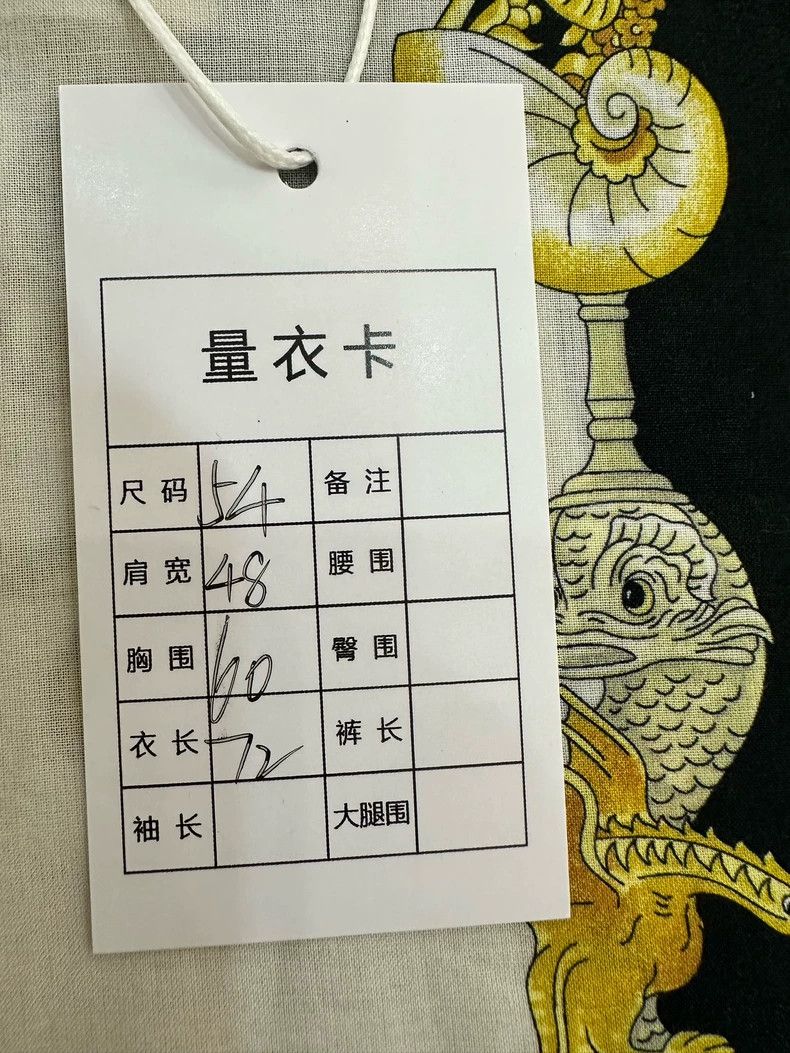 量衣卡
尺码 54 备注
肩宽 48 腰围
胸围 60 臀围
衣长 72 裤长
袖长 大腿围